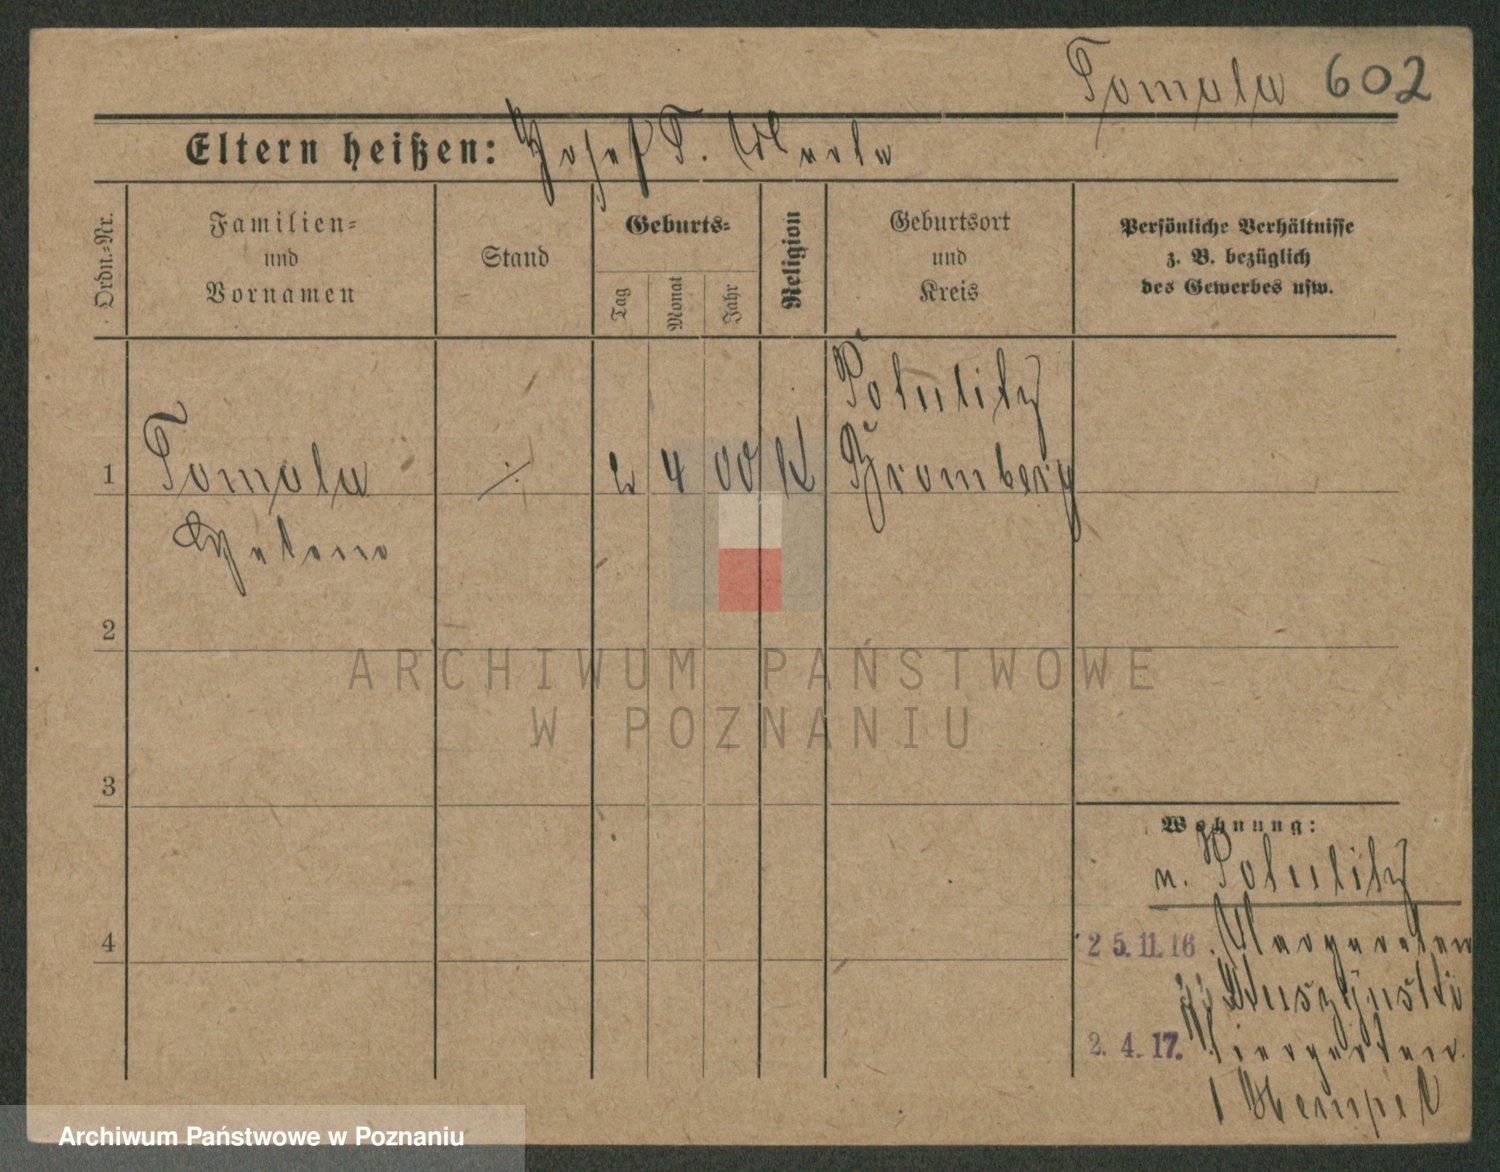 Tomala 602
Eltern heißen: Josef T.
Ordn.-Nr.
Familien-
und
Vornamen
Stand
Geburts-
Tag
Monat
Jahr
Religion
Geburtsort
und
Kreis
Persönliche Verhältnisse
z. B. bezüglich
des Gewerbes usw.
Potulitz
1 Tomala ⁒ 2 4 00 K Bromberg
2
3
4
Wohnung:
n. Potulitz
25.11.16. Margareten
2.4.17. Tiergarten
1
ARCHIWUM PAŃSTWOWE
W POZNANIU
Archiwum Państwowe w Poznaniu